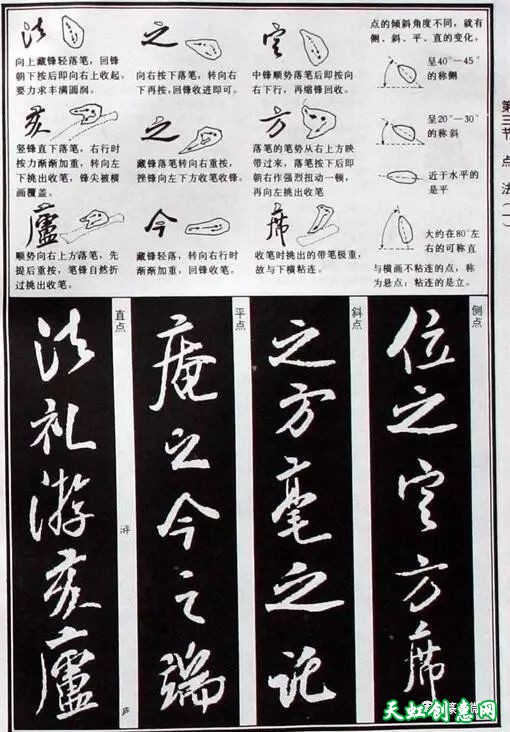 第三节 点法(一)
法
向上藏锋轻落笔,回锋
朝下按后即向右上收起。
要力求丰满圆润。
之
向右按下落笔,转向右
下再按,回锋收进即可。
定
中锋顺势落笔后即按向
右下行,再缩锋回收。
点的倾斜角度不同,就有
侧、斜、平、直的变化。
呈40°—45°
的称侧
亥
竖锋直下落笔,右行时
按力渐渐加重,转向左
下挑出收笔,锋尖被横
画覆盖。
之
藏锋落笔转向右重按,
挫锋向左下方收笔收锋。
方
落笔的笔势从右上方映
带过来,落笔按下后即
朝右作强烈扭动一顿,
再向左挑出收笔。
呈20°—30°
的称斜
近于水平的
是平
廬
顺势向右上方落笔,先
提后重按,笔锋自然折
过挑出收笔。
今
藏锋轻落,转向右行时
渐渐加重,回锋收笔。
席
收笔时挑出的带笔极重,
故与下横粘连。
大约在80°左
右的可称直
与横画不粘连的点,称
为悬点;粘连的是立。
侧点
位之定方席
斜点
之方毫之记
平点
庵之今之端
直点
法礼游亥廬
浒
庐
天虹创意网